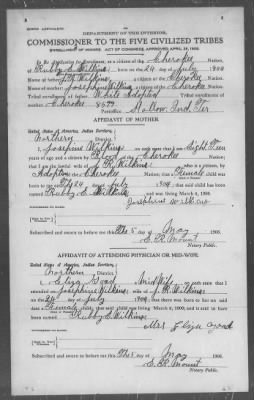 DEPARTMENT OF THE INTERIOR,
COMMISSIONER TO THE FIVE CIVILIZED TRIBES
ENROLLMENT OF MINORS. ACT OF CONGRESS, APPROVED APRIL 26, 1906.
In Re Application for Enrollment, as a citizen of the Cherokee Nation,
of Rubby E Wilkins, born on the 24 day of July, 190
Name of father J R Wilkins a citizen of the Cherokee Nation.
Name of mother Josephine Wilkins a citizen of the Cherokee Nation.
Tribal enrollment of father White Adopted Tribal enrollment of
mother Cherokee
Postoffice Ind Ter
AFFIDAVIT OF MOTHER
United States of America, Indian Territory,
Northern District.
I, Josephine Wilkins, on oath state that I am Eight Teen
years of age and a citizen by Blood, of the Cherokee Nation;
that I am the lawful wife of J R Wilkins, who is a citizen, by
Adoption of the Cherokee Nation; that a Female child was
born to me on 24 day of July, 190 ; that said child has been
named Rubby E Wilkins, and was living March 4, 1906.
Josephine Wilkins
Subscribed and sworn to before me this 5 day of May, 1906.
E R Mount
Notary Public.
AFFIDAVIT OF ATTENDING PHYSICIAN OR MID-WIFE.
United States of America, Indian Territory,
Northern District.
I, Eliza Goad, a Midwife, on oath state that I
attended on Josephine Wilkins, wife of J R Wilkins
on the 24 day of July, 190 ; that there was born to her on said
date a Female child; that said child was living March 4, 1906, and is said to have
been named Rubby E Wilkins
Mrs Eliza Goad
Subscribed and sworn to before me this 5 day of May, 1906.
E R Mount
Notary Public.